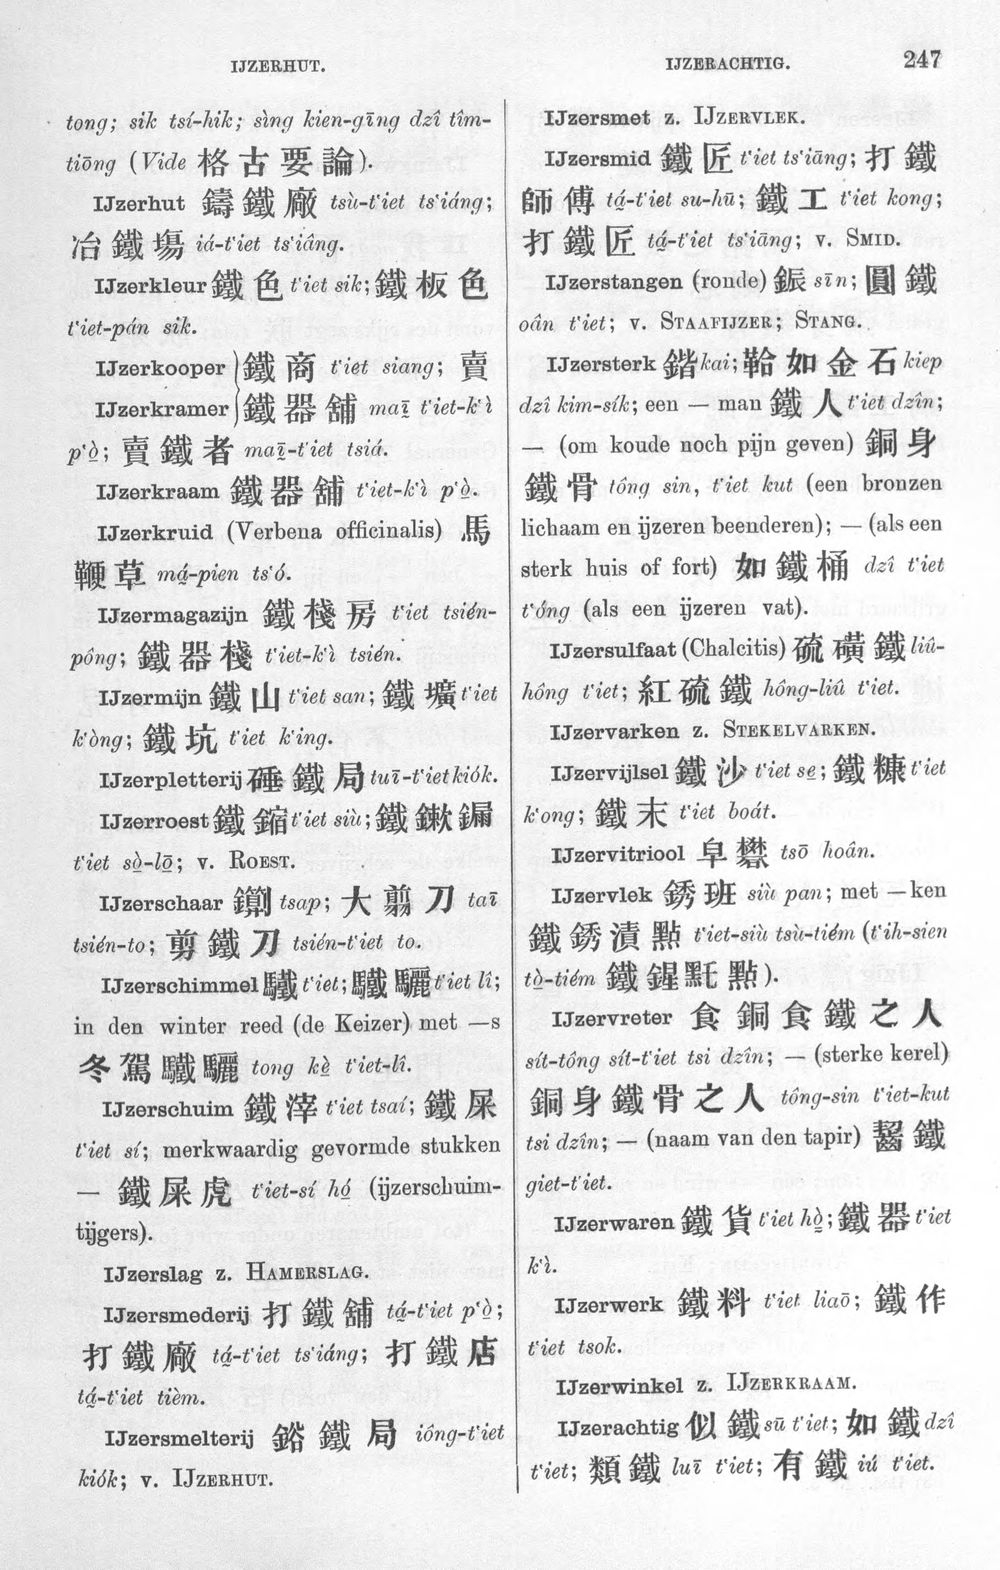 IJZERHUT.
IJZERACHTIG.
247
tong; sik tsí-hik; sìng kien-gīng dzî tîm-
tiōng (Vide 格古要論).
IJzerhut 鑄鐵廠 tsù-t'iet ts'iáng;
冶鐵塲 iá-t'iet ts'iâng.
IJzerkleur 鐵色 t'iet sik; 鐵板色
t'iet-pán sik.
IJzerkooper ) 鐵商 t'iet siang; 賣
IJzerkramer ) 鐵器舖 maī t'iet-k'ì
p'ò; 賣鐵者 maī-t'iet tsiá.
IJzerkraam 鐵器舖 t'iet-k'ì p'ò.
IJzerkruid (Verbena officinalis) 馬
鞭草 má-pien ts'ó.
IJzermagazijn 鐵棧房 t'iet tsién-
pông; 鐵器棧 t'iet-k'ì tsién.
IJzermijn 鐵山 t'iet san; 鐵壙 t'iet
k'òng; 鐵坑 t'iet k'ing.
IJzerpletterij 硾鐵局 tuī-t'iet kiók.
IJzerroest 鐵鏥 t'iet siù; 鐵鏉鏽
t'iet sò-lō; v. ROEST.
IJzerschaar 鍘 tsap; 大剪刀 taī
tsién-to; 剪鐵刀 tsién-t'iet to.
IJzerschimmel 驖 t'iet; 驖驪 t'iet lî;
in den winter reed (de Keizer) met —s
冬駕驖驪 tong kè t'iet-lî.
IJzerschuim 鐵滓 t'iet tsaí; 鐵屎
t'iet sí; merkwaardig gevormde stukken
— 鐵屎虎 t'iet-sí hó (ijzerschuim-
tijgers).
IJzerslag z. HAMERSLAG.
IJzersmederij 打鐵舖 tá-t'iet p'ò;
打鐵廠 tá-t'iet ts'iáng; 打鐵店
tá-t'iet tièm.
IJzersmelterij 鎔鐵局 iông-t'iet
kiók; v. IJZERHUT.
IJzersmet z. IJZERVLEK.
IJzersmid 鐵匠 t'iet ts'iāng; 打鐵
師傅 tá-t'iet su-hū; 鐵工 t'iet kong;
打鐵匠 tá-t'iet ts'iāng; v. SMID.
IJzerstangen (ronde) 鋠 sīn; 圓鐵
oân t'iet; v. STAAFIJZER; STANG.
IJzersterk 鍇 kai; 鞈如金石 kiep
dzî kim-sík; een — man 鐵人 t'iet dzîn;
— (om koude noch pijn geven) 銅身
鐵骨 tông sin, t'iet kut (een bronzen
lichaam en ijzeren beenderen); — (als een
sterk huis of fort) 如鐵桶 dzî t'iet
t'óng (als een ijzeren vat).
IJzersulfaat (Chalcitis) 硫磺鐵 liû-
hông t'iet; 紅硫鐵 hông-liû t'iet.
IJzervarken z. STEKELVARKEN.
IJzervijlsel 鐵沙 t'iet se; 鐵糠 t'iet
k'ong; 鐵末 t'iet boát.
IJzervitriool 皁礬 tsō hoân.
IJzervlek 銹班 siù pan; met —ken
鐵銹漬點 t'iet-siù tsù-tiém (t'ih-sien
tò-tiém 鐵鍟點).
IJzervreter 食銅食鐵之人
sít-tông sít-t'iet tsi dzîn; — (sterke kerel)
銅身鐵骨之人 tông-sin t'iet-kut
tsi dzîn; — (naam van den tapir) 齧鐵
giet-t'iet.
IJzerwaren 鐵貨 t'iet hò; 鐵器 t'iet
k'ì.
IJzerwerk 鐵料 t'iet liaō; 鐵作
t'iet tsok.
IJzerwinkel z. IJZERKRAAM.
IJzerachtig 似鐵 sū t'iet; 如鐵 dzî
t'iet; 類鐵 luī t'iet; 有鐵 iú t'iet.